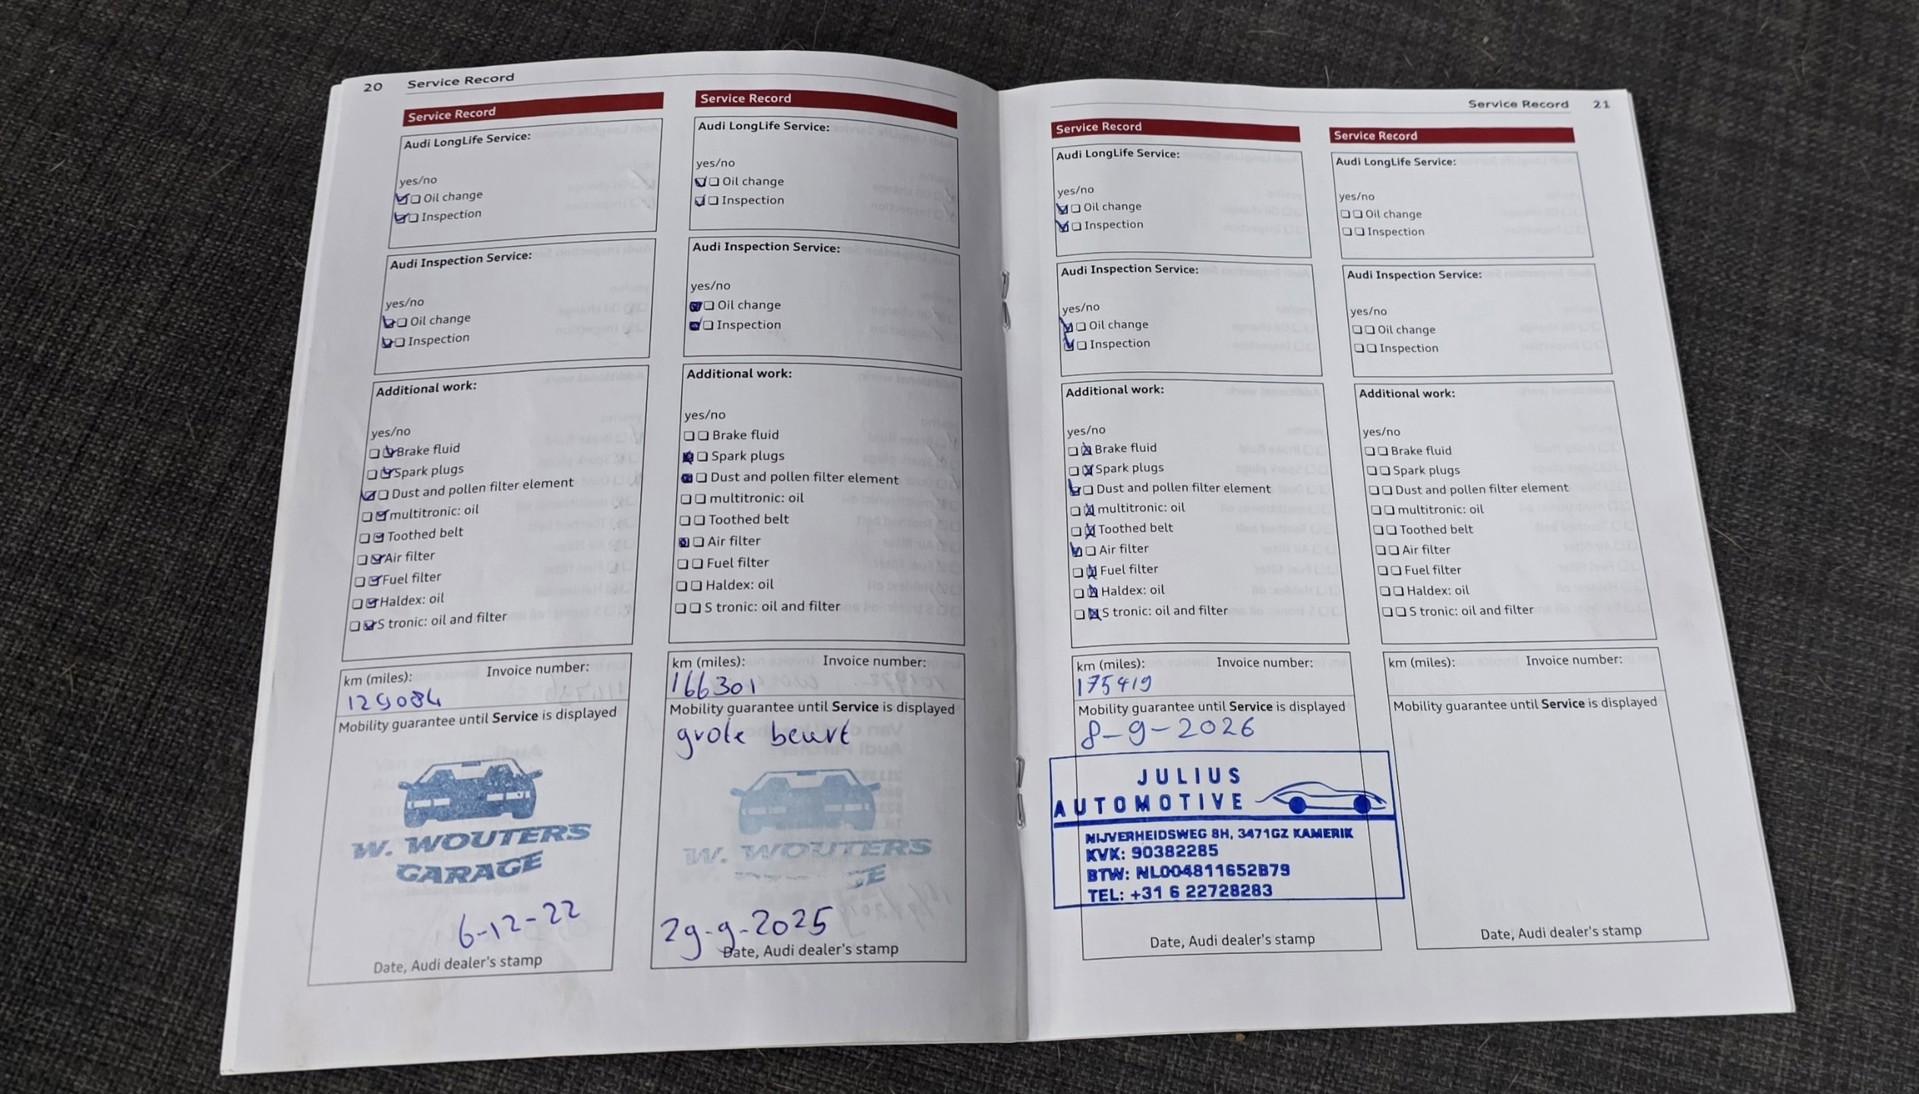 20 Service Record
Service Record
Audi LongLife Service:
yes/no
Oil change
Inspection
Audi Inspection Service:
yes/no
Oil change
Inspection
Additional work:
yes/no
Brake fluid
Spark plugs
Dust and pollen filter element
multitronic: oil
Toothed belt
Air filter
Fuel filter
Haldex: oil
S tronic: oil and filter
km (miles): Invoice number:
129084
Mobility guarantee until Service is displayed
W. WOUTERS
GARAGE
6-12-22
Date, Audi dealer's stamp
Service Record
Audi LongLife Service:
yes/no
Oil change
Inspection
Audi Inspection Service:
yes/no
Oil change
Inspection
Additional work:
yes/no
Brake fluid
Spark plugs
Dust and pollen filter element
multitronic: oil
Toothed belt
Air filter
Fuel filter
Haldex: oil
S tronic: oil and filter
km (miles): Invoice number:
166301
Mobility guarantee until Service is displayed
grote beurt
W. WOUTERS
GE
29-9-2025
Date, Audi dealer's stamp
Service Record 21
Service Record
Audi LongLife Service:
yes/no
Oil change
Inspection
Audi Inspection Service:
yes/no
Oil change
Inspection
Additional work:
yes/no
Brake fluid
Spark plugs
Dust and pollen filter element
multitronic: oil
Toothed belt
Air filter
Fuel filter
Haldex: oil
S tronic: oil and filter
km (miles): Invoice number:
175419
Mobility guarantee until Service is displayed
8-9-2026
JULIUS
AUTOMOTIVE
NIJVERHEIDSWEG 8H, 3471GZ KAMERIK
KVK: 90382285
BTW: NL004811652B79
TEL: +31 6 22728283
Date, Audi dealer's stamp
Service Record
Audi LongLife Service:
yes/no
Oil change
Inspection
Audi Inspection Service:
yes/no
Oil change
Inspection
Additional work:
yes/no
Brake fluid
Spark plugs
Dust and pollen filter element
multitronic: oil
Toothed belt
Air filter
Fuel filter
Haldex: oil
S tronic: oil and filter
km (miles): Invoice number:
Mobility guarantee until Service is displayed
Date, Audi dealer's stamp